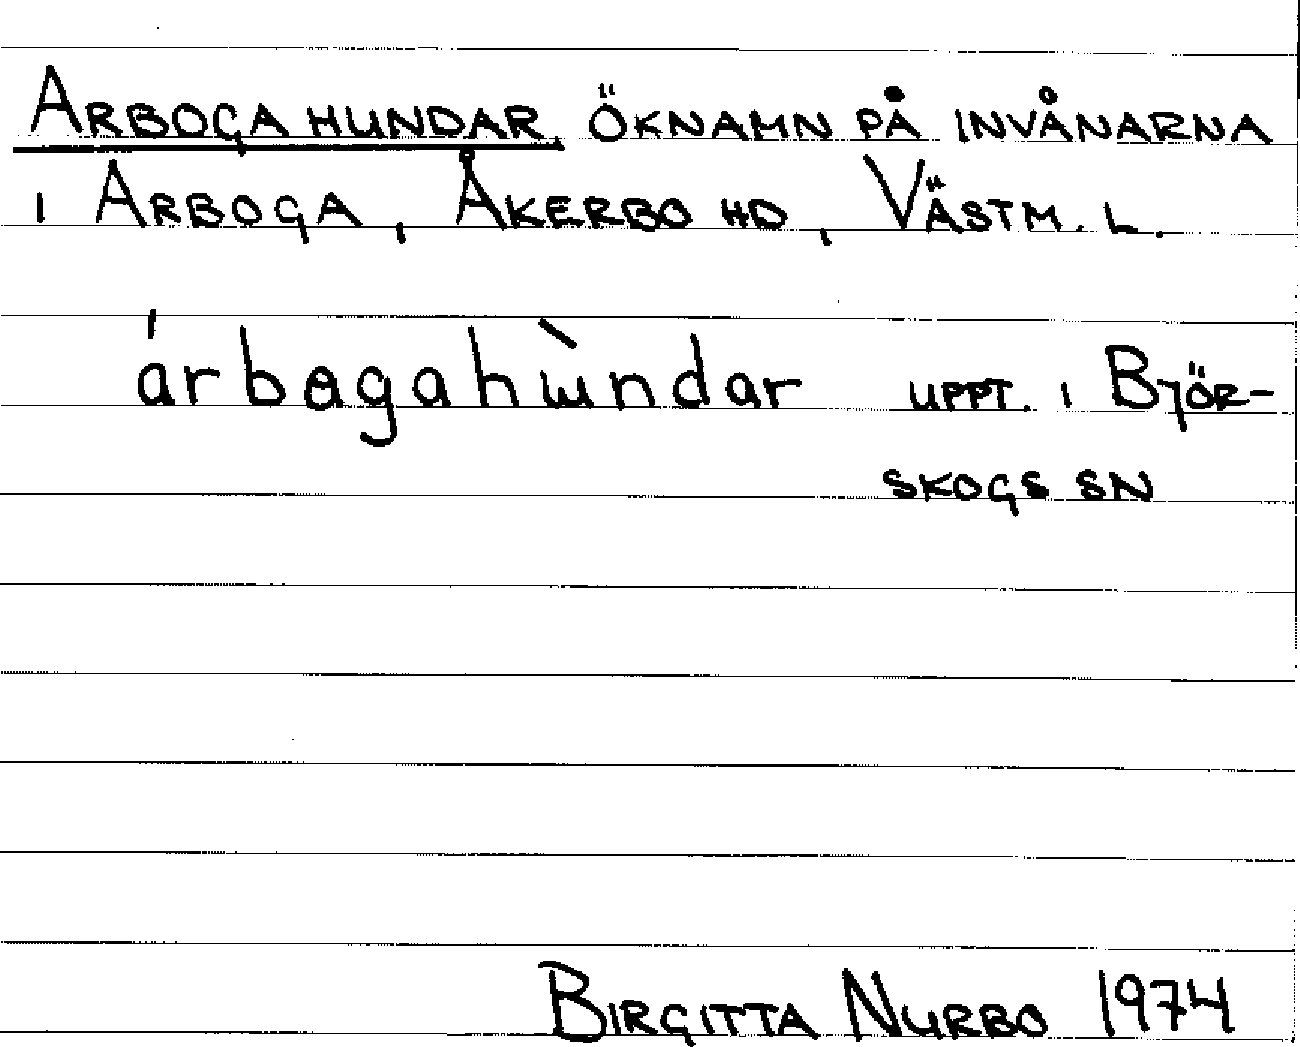 ARBOGAHUNDAR, ÖKNAMN PÅ INVÅNARNA
I ARBOGA, ÅKERBO HD, VÄSTM. L.
árbɵgahɯ̀ndar UPPT. I BJÖR-
SKOGS SN
BIRGITTA NURBO 1974